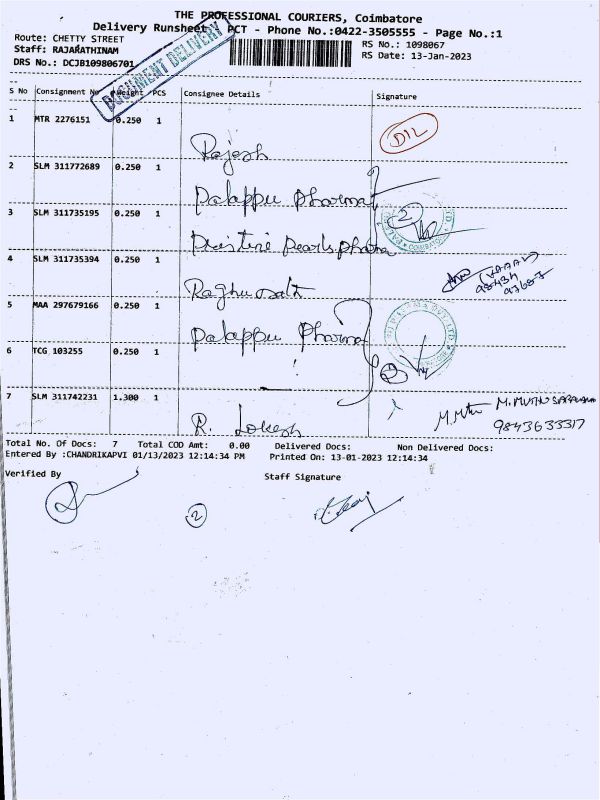 THE PROFESSIONAL COURIERS, Coimbatore
Delivery Runsheet PCT - Phone No.:0422-3505555 - Page No.:1
Route: CHETTY STREET
RS No.: 1098067
Staff: RAJARATHINAM
RS Date: 13-Jan-2023
DRS No.: DCJB109806701
DOCUMENT DELIVERY
S No Consignment No Weight PCS Consignee Details Signature
1 MTR 2276151 0.250 1
Rajesh
2 SLM 311772689 0.250 1
Palappu Pharma
3 SLM 311735195 0.250 1
2
Pristine Pearls pharma
4 SLM 311735394 0.250 1
98434
Raghunath
5 MAA 297679166 0.250 1
Palappu Pharma
6 TCG 103255 0.250 1
7 SLM 311742231 1.300 1
R. Lokesh
9843633317
Total No. Of Docs: 7 Total COD Amt: 0.00 Delivered Docs: Non Delivered Docs:
Entered By :CHANDRIKAPVI 01/13/2023 12:14:34 PM Printed On: 13-01-2023 12:14:34
Verified By
Staff Signature
2